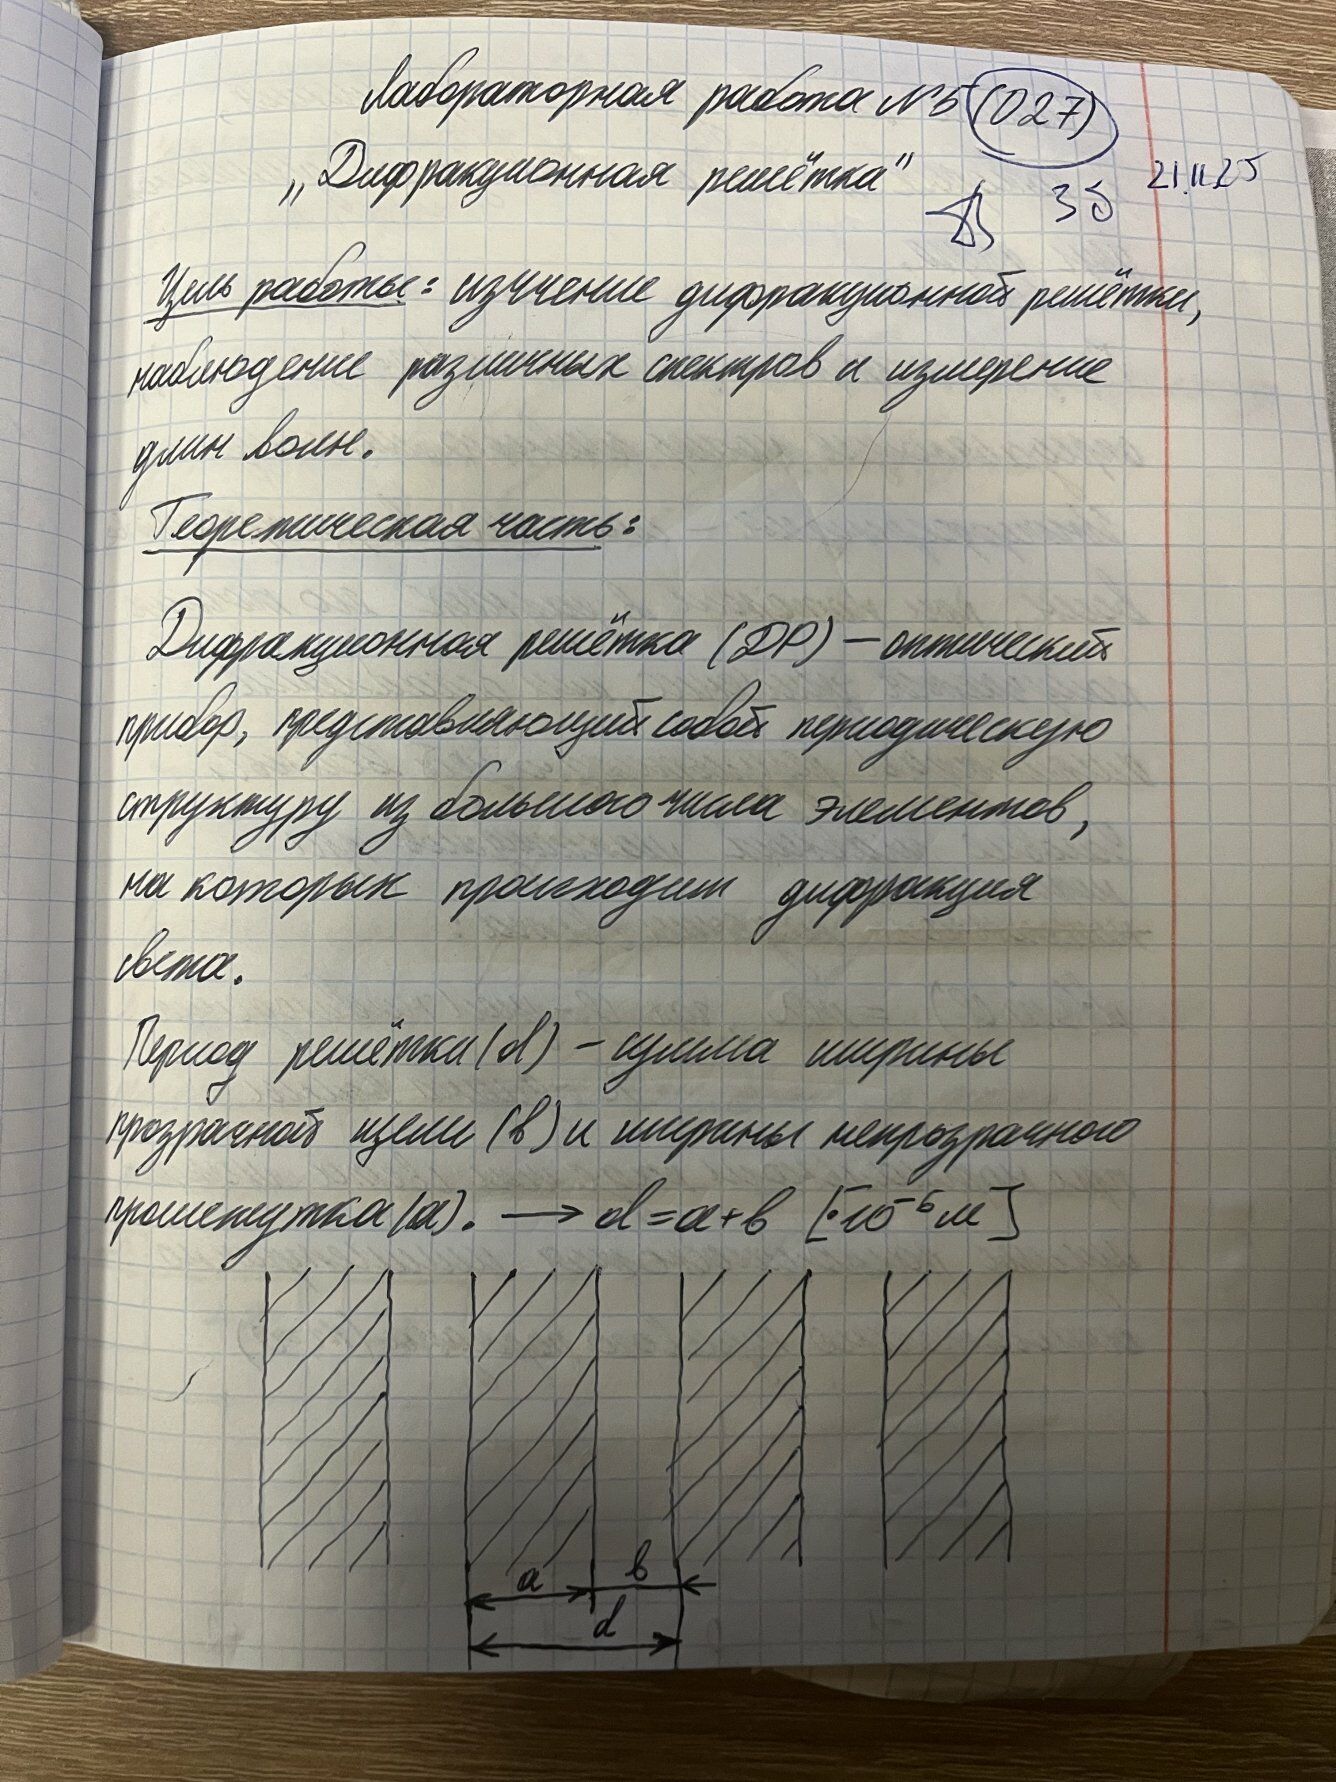 Лабораторная работа №5 (027)
„Дифракционная решётка"
35 21.11.25
Цель работы: изучение дифракционной решётки,
наблюдение различных спектров и измерение
длин волн.
Теоретическая часть:
Дифракционная решётка (ДР) — оптический
прибор, представляющий собой периодическую
структуру из большого числа элементов,
на которых происходит дифракция
света.
Период решётки (d) – сумма ширины
прозрачной щели (b) и ширины непрозрачного
промежутка (a). → d = a + b [·10⁻⁶ м]
a b
d